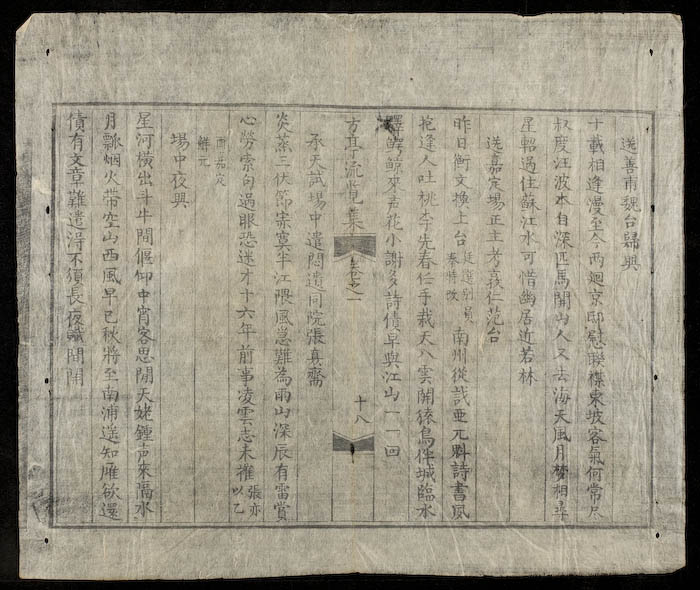 送善甫魏台歸興
十載相逢漫至今兩廻京邸慰聯襟東坡客氣何常尽
叔度汪波本自深匹馬開山人又去海天風月梦相尋
星軺過住蘇江水可惜幽居近若林
送嘉定場正主考義仁范台
昨日衡文換上台廷選別員奉特改南州從哉亜元斟詩書風
抱逢人吐桃李先春任手栽天八雲開猿鳥伴城臨水
驛鱷鯨來花小謝多詩債早與江山一一回
方亭流覽集 卷之一 十八
承天試場中遣悶遺同院張真齋
炎蒸三伏節寂寞半江隈風急難為雨山深辰有雷賞
心勞索句過眼恐迷才十六年前事凌雲志未摧張亦以乙
酉嘉定解元
場中夜興
星河橫出斗牛間偃仰中宵客思閒天姥鍾声來隔水
月瓢烟火帶空山西風早已秋將至南浦遥知雁欲還
債有文章難遣得不須長夜議間閒